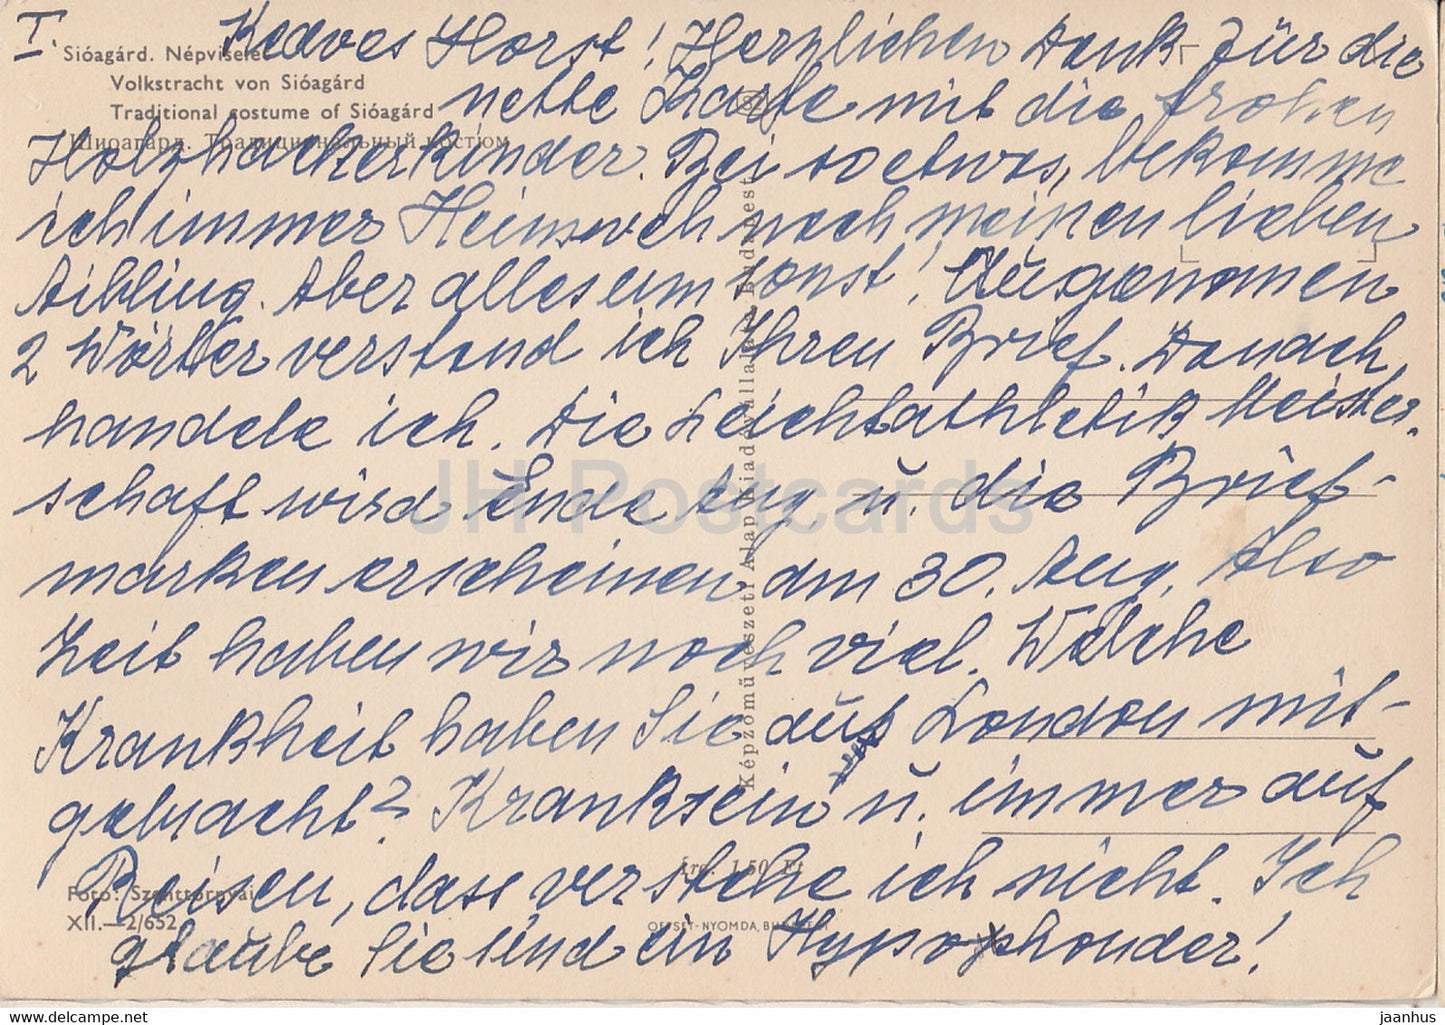 I. Kedves Horst! Herzlichen Dank für die
Sióagárd. Népviselet
Volkstracht von Sióagárd
Traditional costume of Sióagárd
Шиоагард. Традициональный костюм
nette Karte mit die frohen
Holzhackerkinder. Bei so etwas, bekomme
ich immer Heimweh nach meinen lieben
Aibling. Aber alles um sonst! Augenommen
2 Wörter verstand ich Ihren Brief. Danach
handele ich. Die Leichtathletik Meister-
schaft wird Ende Aug. u. die Brief-
marken erscheinen am 30. Aug. Also
Zeit haben wir noch viel. Welche
Krankheit haben Sie aus London mit-
gebracht? Kranksein u. immer auf
Reisen, dass verstehe ich nicht. Ich
glaube Sie sind ein Hypophonder!
Képzőművészeti Alap Kiadóvállalata, Budapest
Foto: Szentternyai
XII.—2/652
Ára: 1,50 Ft
OFFSET-NYOMDA, BUDAPEST
JH Postcards
jaanhus.delcampe.net